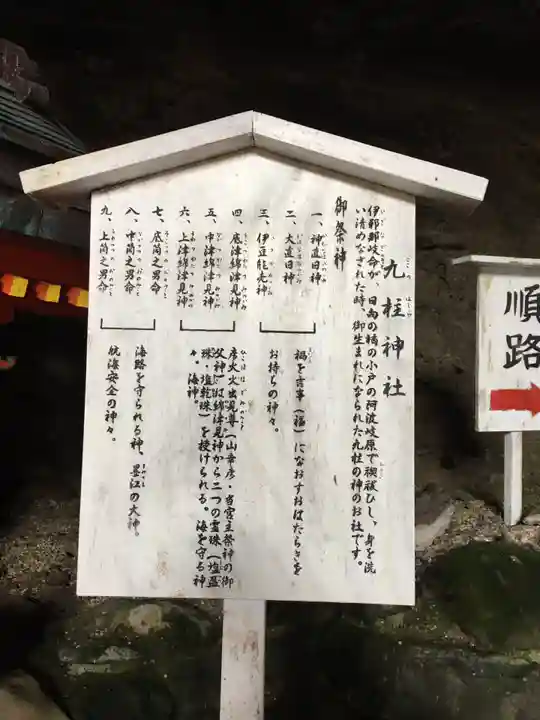 九柱神社
伊邪那岐命が、日向の橘の小戸の阿波岐原で禊祓ひし、身を洗
い清めなされた時、御生まれになられた九柱の神のお社です。
御祭神
一、神直日神
二、大直日神
三、伊豆能売神
禍を吉事（福）になおすおはたらきを
お持ちの神々。
四、底津綿津見神
五、中津綿津見神
六、上津綿津見神
彦火火出見尊（山幸彦・当宮主祭神の御
父神）は綿津見神から二つの霊珠（塩盈
珠・塩乾珠）を授けられる。海を守る神
々。海神。
七、底筒之男命
八、中筒之男命
九、上筒之男命
海路を守られる神、墨江の大神。
航海安全の神々。
順路